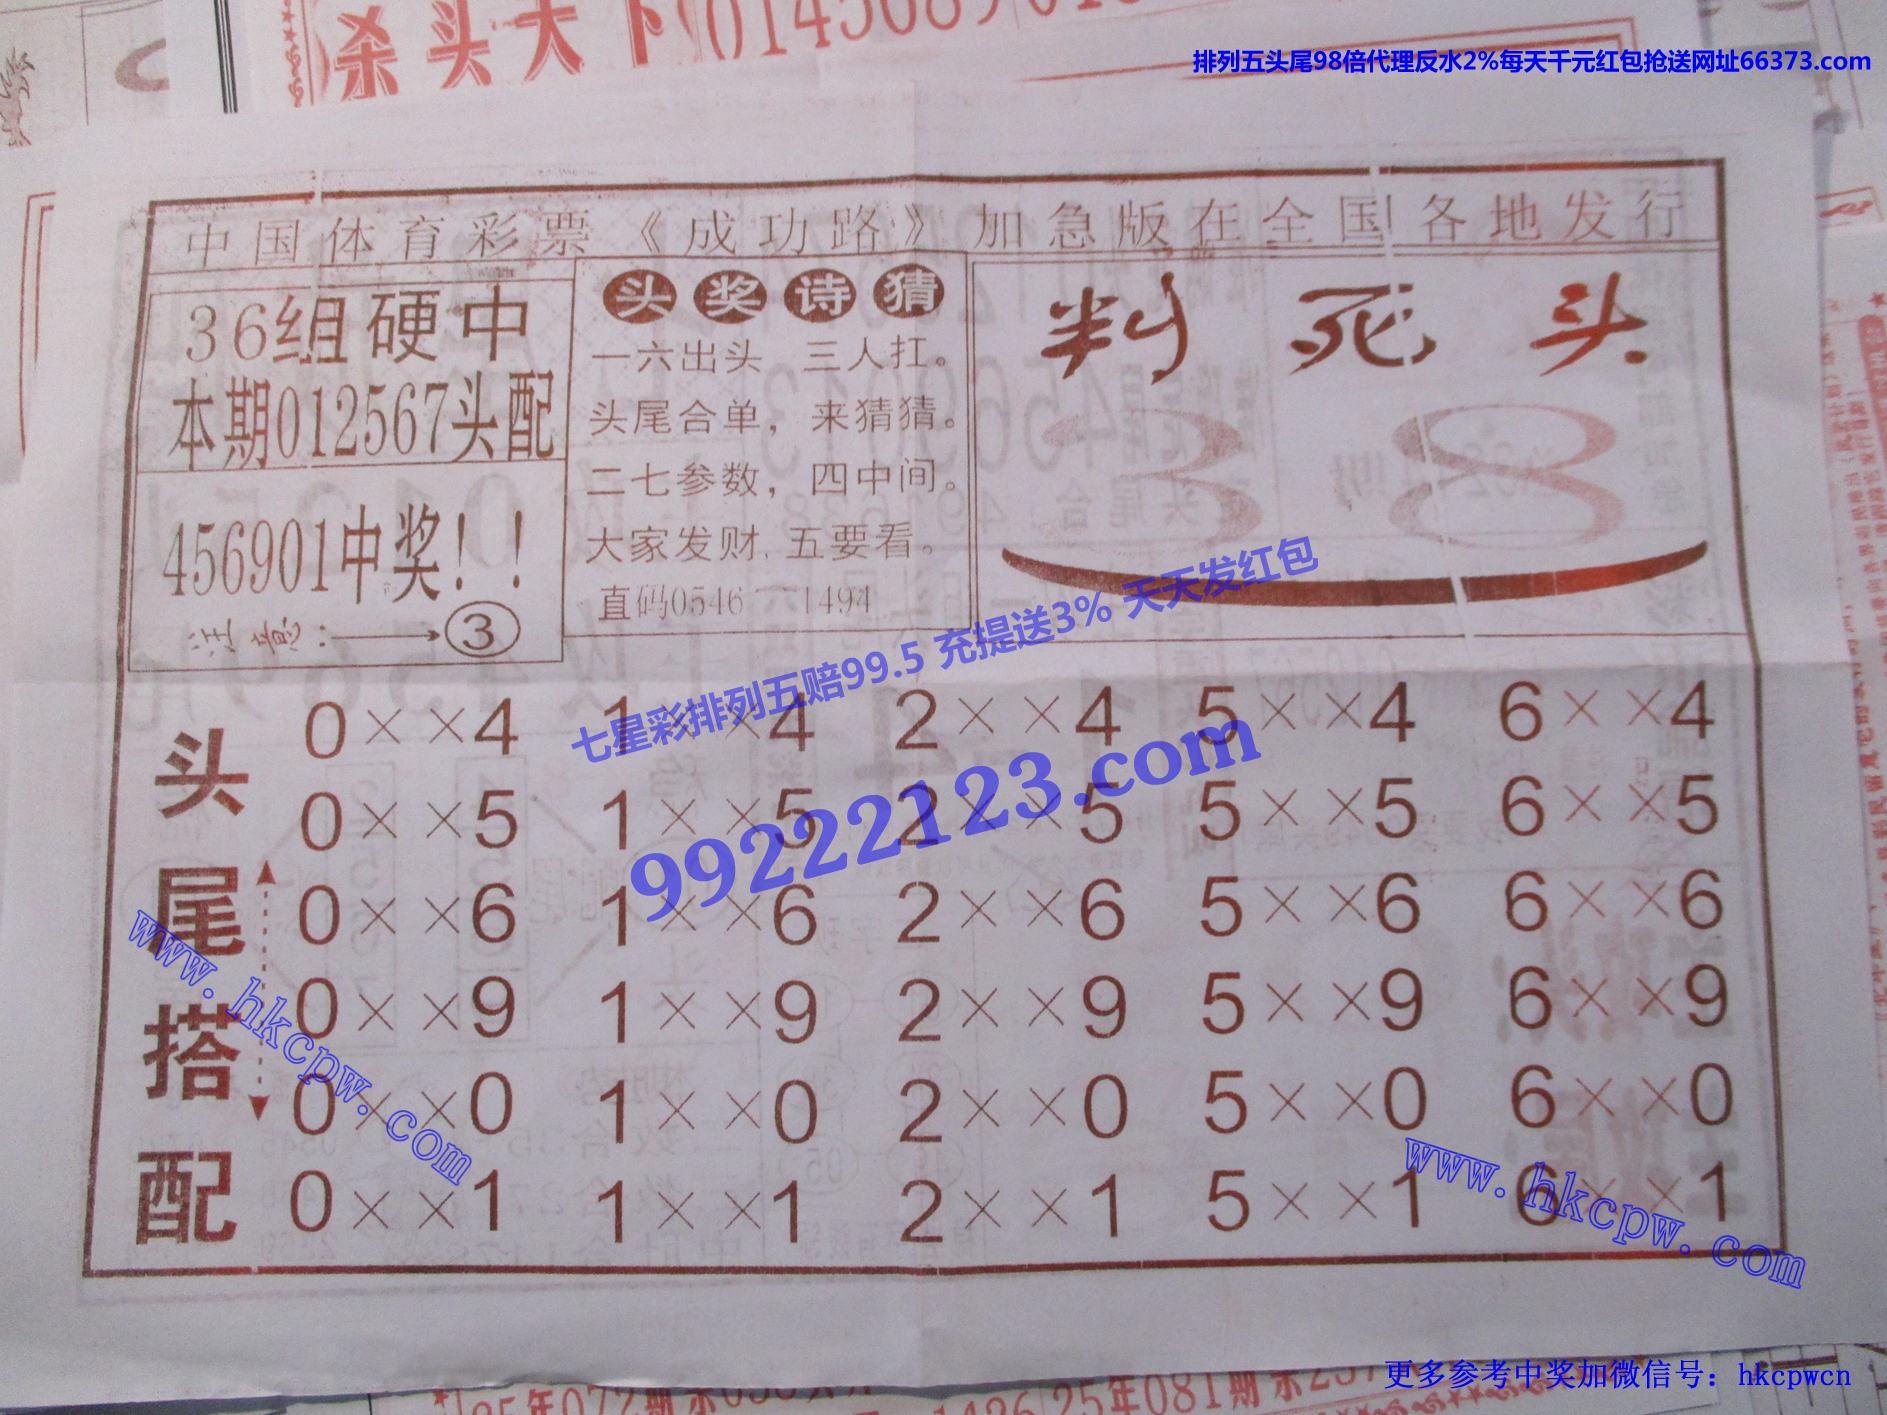 杀头天下 0145689
排列五头尾98倍代理反水2%每天千元红包抢送网址66373.com
中国体育彩票《成功路》加急版在全国各地发行
36组硬中
本期012567头配
456901中奖！！
注意：→③
头奖诗猜
一六出头 三人扛。
头尾合单，来猜猜。
二七参数，四中间。
大家发财，五要看。
直码0546一1494
判死头
38
七星彩排列五赔99.5 充提送3% 天天发红包
99222123.com
头尾搭配
0××4 1××4 2××4 5××4 6××4
0××5 1××5 2××5 5××5 6××5
0××6 1××6 2××6 5××6 6××6
0××9 1××9 2××9 5××9 6××9
0××0 1××0 2××0 5××0 6××0
0××1 1××1 2××1 5××1 6××1
www.hkcpw.com
www.hkcpw.com
更多参考中奖加微信号：hkcpwcn
25年081期杀